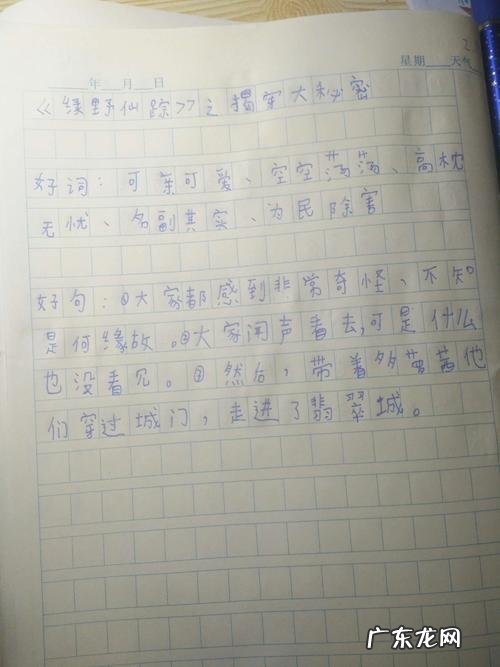 2
____年__月__日 星期____天气
《绿野仙踪》之揭穿大秘密
好词：可亲可爱、空空荡荡、高枕
无忧、名副其实、为民除害
好句：①大家都感到非常奇怪、不知
是何缘故。②大家闻声看去,可是什么
也没看见。③然后，带着多萝茜他
们穿过城门，走进了翡翠城。
广东龙网